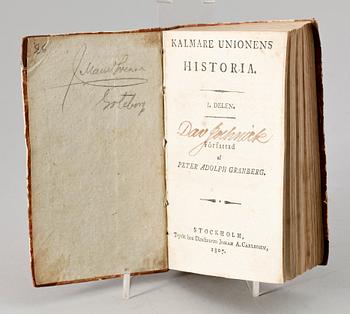 Göteborg
KALMARE UNIONENS
HISTORIA.
I. DELEN.
författad
af
PETER ADOLPH GRANBERG.
STOCKHOLM,
Tryckt hos Directeuren JOHAN A. CARLBOHM,
1807.